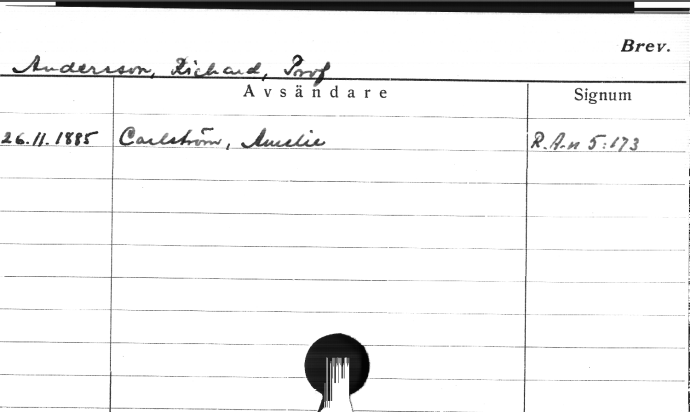 Brev.
Andersson, Richard, Prof
Avsändare Signum
26.11.1885 Carlström, Amelie R.A-n 5:173